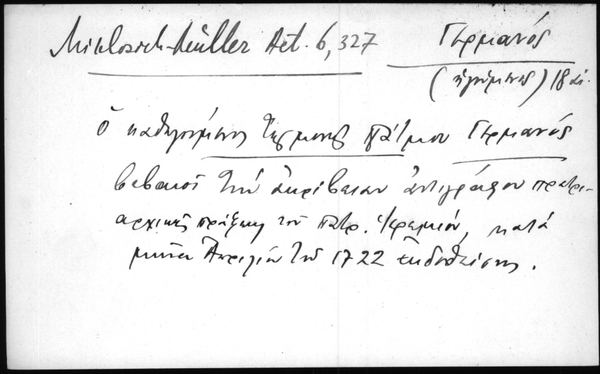 Miklosich-Müller Act. 6, 327
Γερμανός
(ηγούμενος) 18 αι.
ὁ καθηγούμενος τῆς μονῆς Πάτμου Γερμανός
βεβαιοῖ τὴν ἀκρίβειαν ἀντιγράφου πατρι-
αρχικῆς πράξεως τοῦ πατρ. Ἱερεμίου, κατά
μῆνα Ἀπρίλιον τοῦ 1722 ἐκδοθείσης.